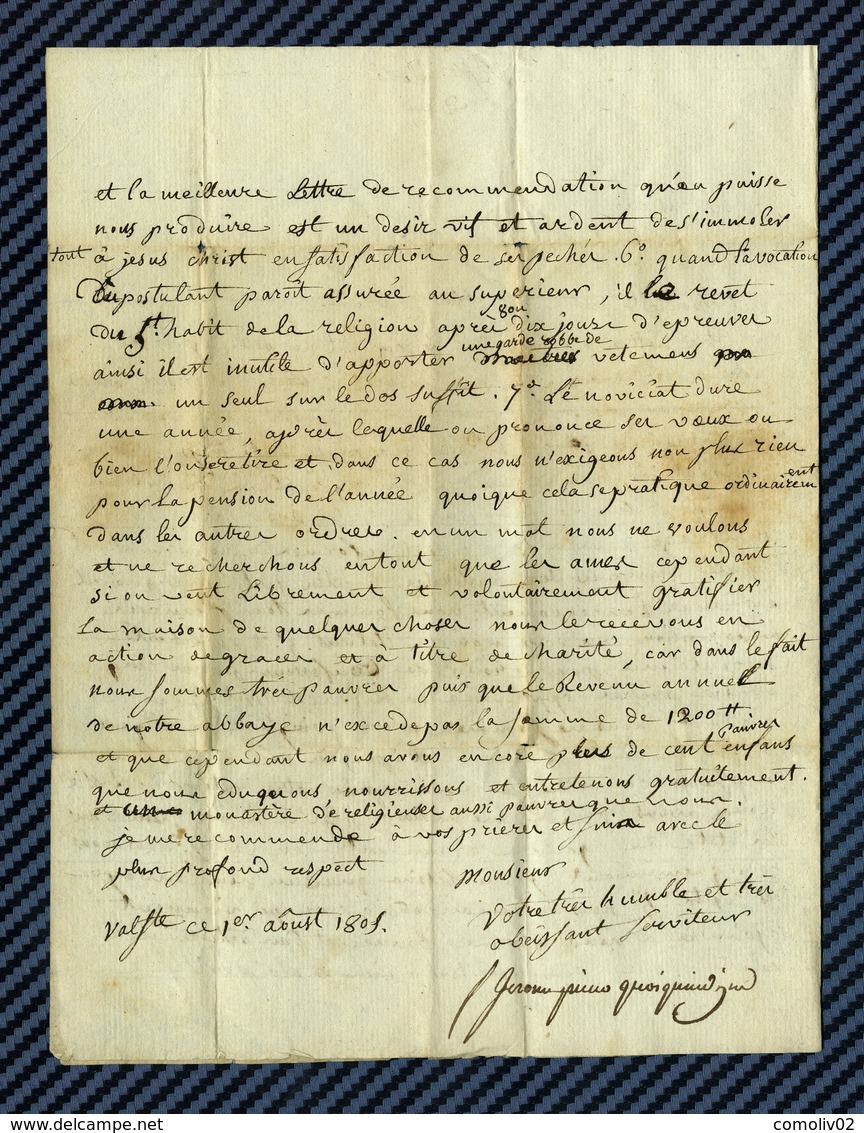 et la meilleure Lettre de recommendation qu'on puisse
nous produire est un desir vif et ardent de s'immoler
tout à jesus christ en satisfaction de ses pechés. 6° quand la vocation
du postulant paroît assurée au superieur, il le revet
du St. habit de la religion après 8 ou dix jours d'epreuves
ainsi il est inutile d'apporter une garde robbe de vetemens
un seul sur le dos suffit. 7° Le noviciat dure
une année, après laquelle on prononce ses vœux ou
bien l'on se retire et dans ce cas nous n'exigeons non plus rien
pour la pension de l'année quoique cela se pratique ordinairement
dans les autres ordres. en un mot nous ne voulons
et ne recherchons en tout que les ames cependant
si on veut Librement et volontairement gratifier
La maison de quelques choses nous le recevons en
action de graces et à titre de charité, car dans le fait
nous sommes très pauvres puis que le Revenu annuel
de notre abbaye n'excede pas la somme de 1200 tt
et que cependant nous avons encore plus de cent pauvres enfans
que nous eduquons nourrissons et entretenons gratuitement.
et monastère de religieuses aussi pauvres que nous.
je me recommende à vos prieres et suis avec le
plus profond respect
Monsieur
Votre très humble et très
obeissant serviteur
Valste ce 1er aôust 1805.